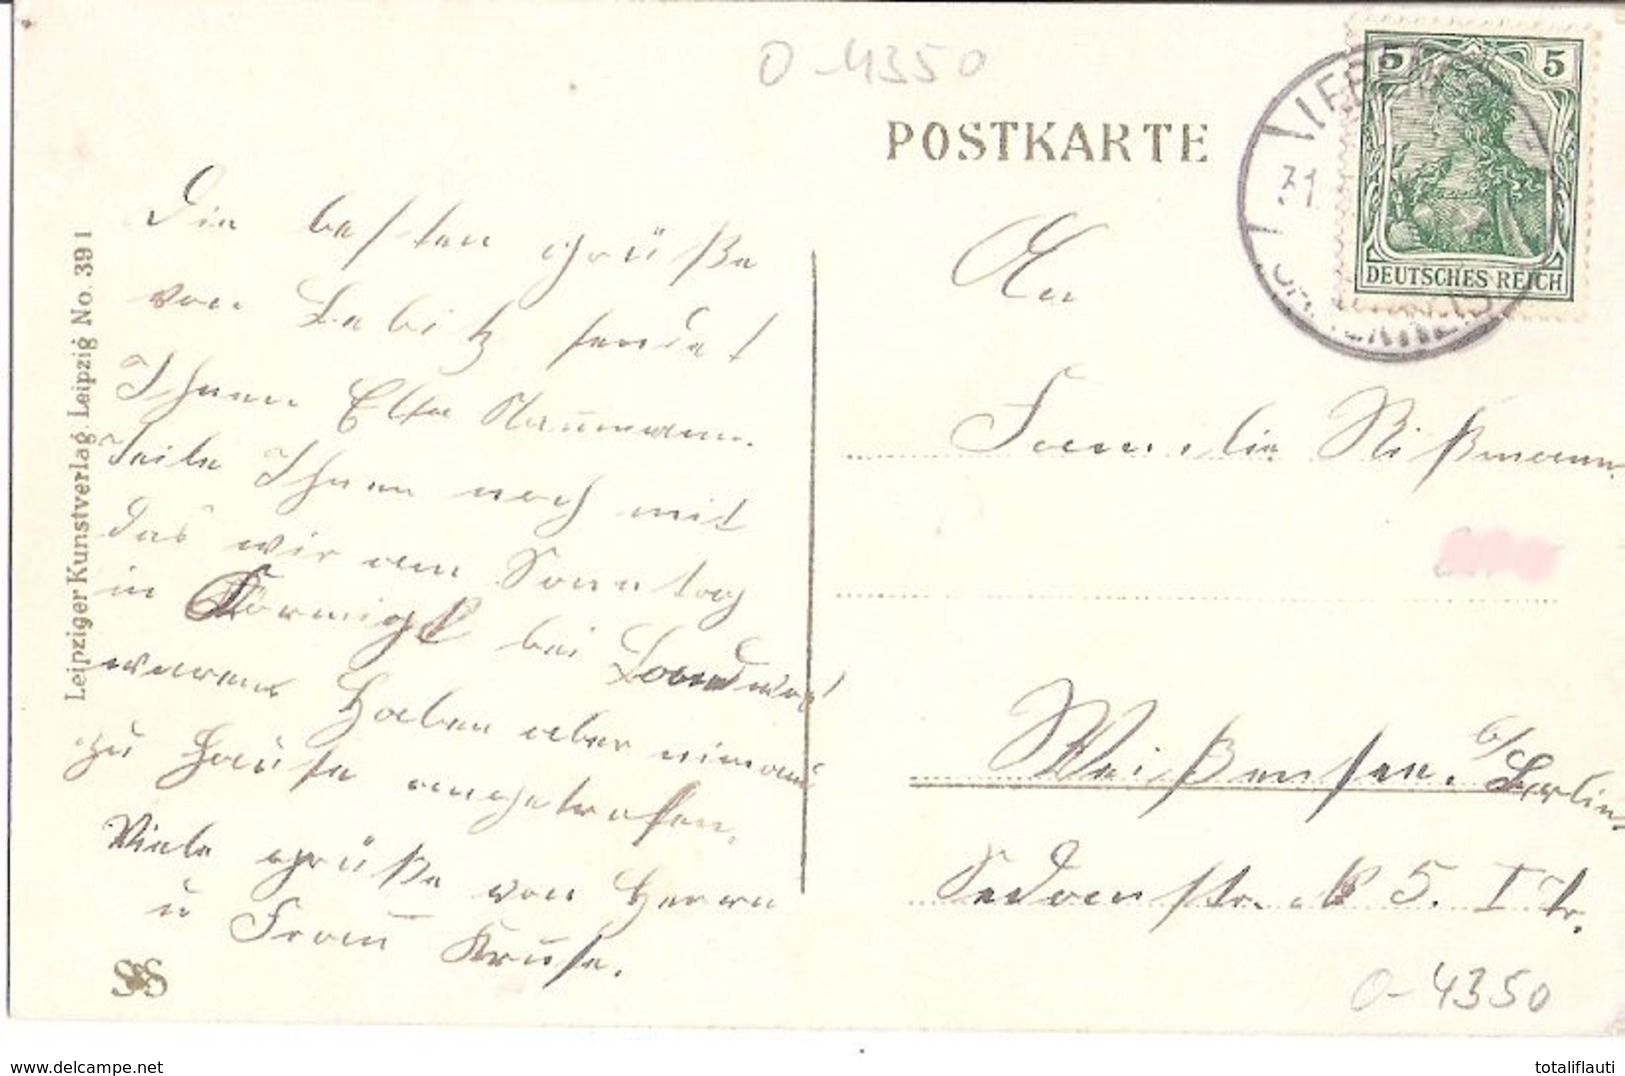 O-4350
POSTKARTE
5 5
DEUTSCHES REICH
31.
Leipziger Kunstverlag, Leipzig No. 391
Die besten Grüße
von Labitz sendet
Ihnen Elsa Naumann.
Teile Ihnen noch mit
das wir am Sonntag
in Körmigk bei
warens Haben aber nimand
zu Hause angetrofen.
Viele Grüße von Herrn
u Frau Kruse.
S&S
An
Familie Rißmann
Weißensee. b/Berlin.
Sedanstr. 5. I tr.
O-4350
delcampe.net
totaliflauti